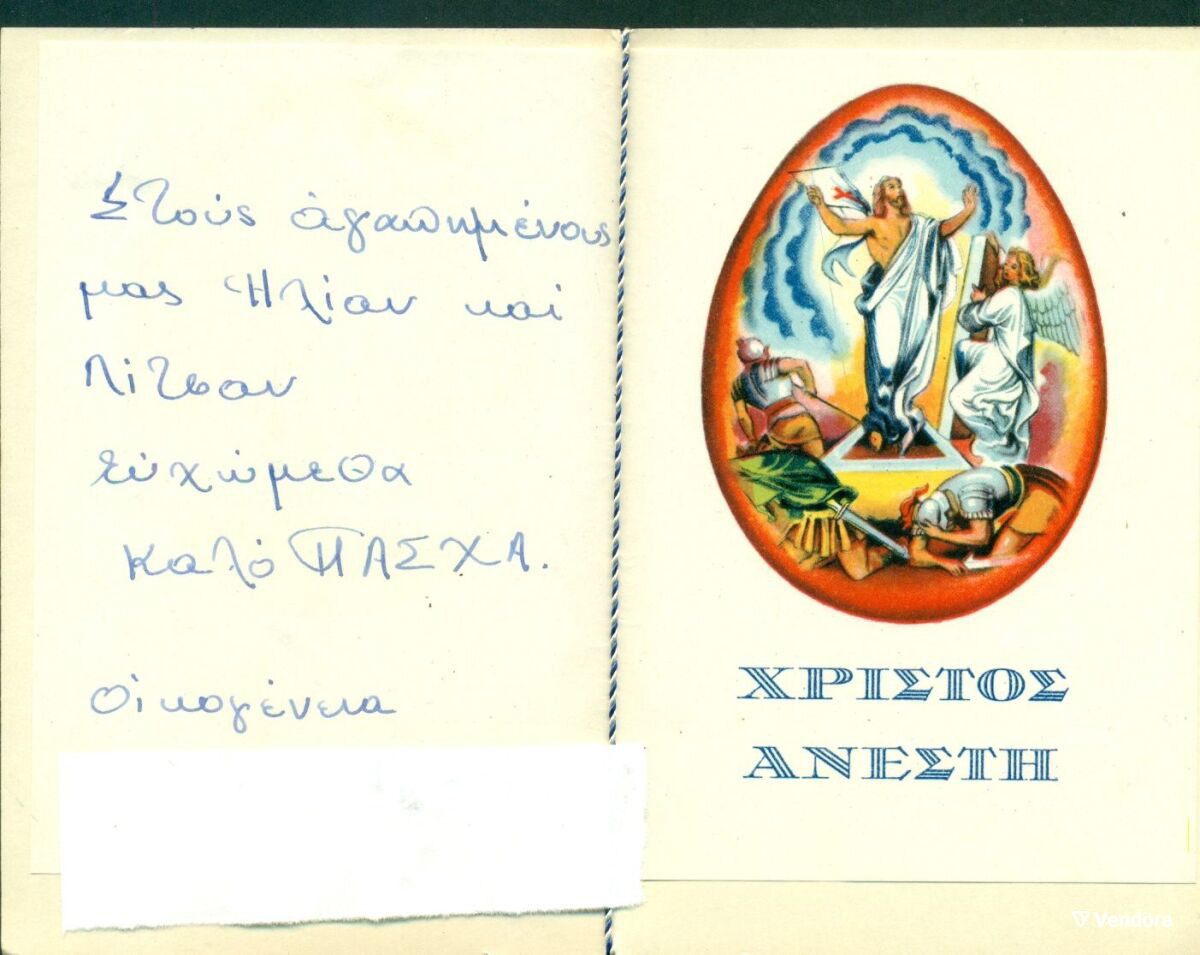 Στούς ἀγαπημένους
μας Ἠλίαν καί
Λίτσαν
εὐχώμεθα
Καλό ΠΑΣΧΑ.
Οἰκογένεια
ΧΡΙΣΤΟΣ
ΑΝΕΣΤΗ
Vendora